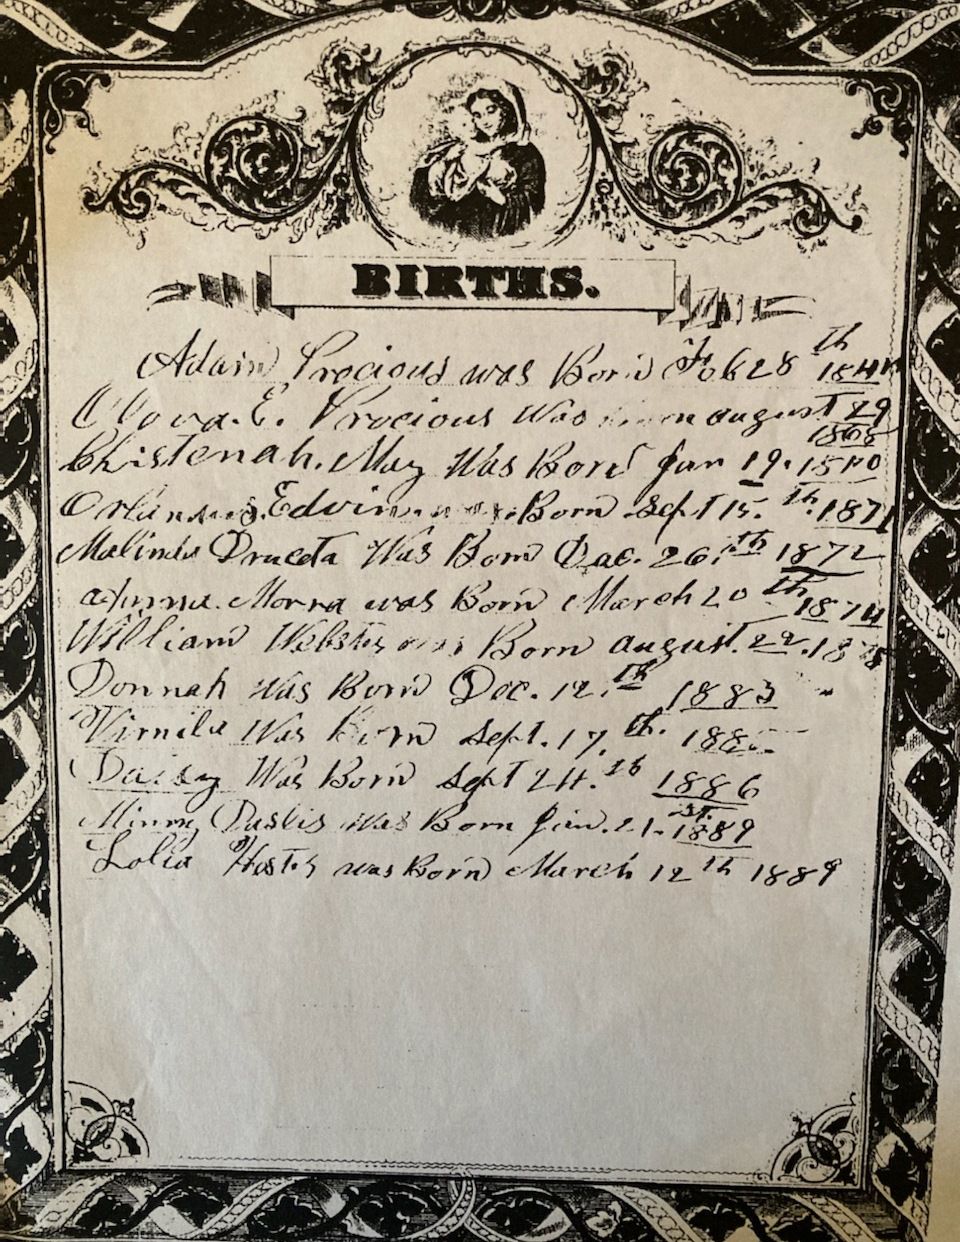 BIRTHS.
Adam Procious was Born Feb 28th
E. Procious Was august 29
Christenah. May Was Born Jan 19.
Edwin Born Sept 15.th 1871
Malinda Was Born Dec. 26.th 1872
was Born March 20th 1874
William Webster was Born august. 22. 187
Donnah Was Born Dec. 12.th 1883
Virnila Was Born Sept. 17.th. 188
Daisey Was Born Sept 24.th 1886
Minny Was Born Jan. 21.st. 1889
Was Born March 12th 1889